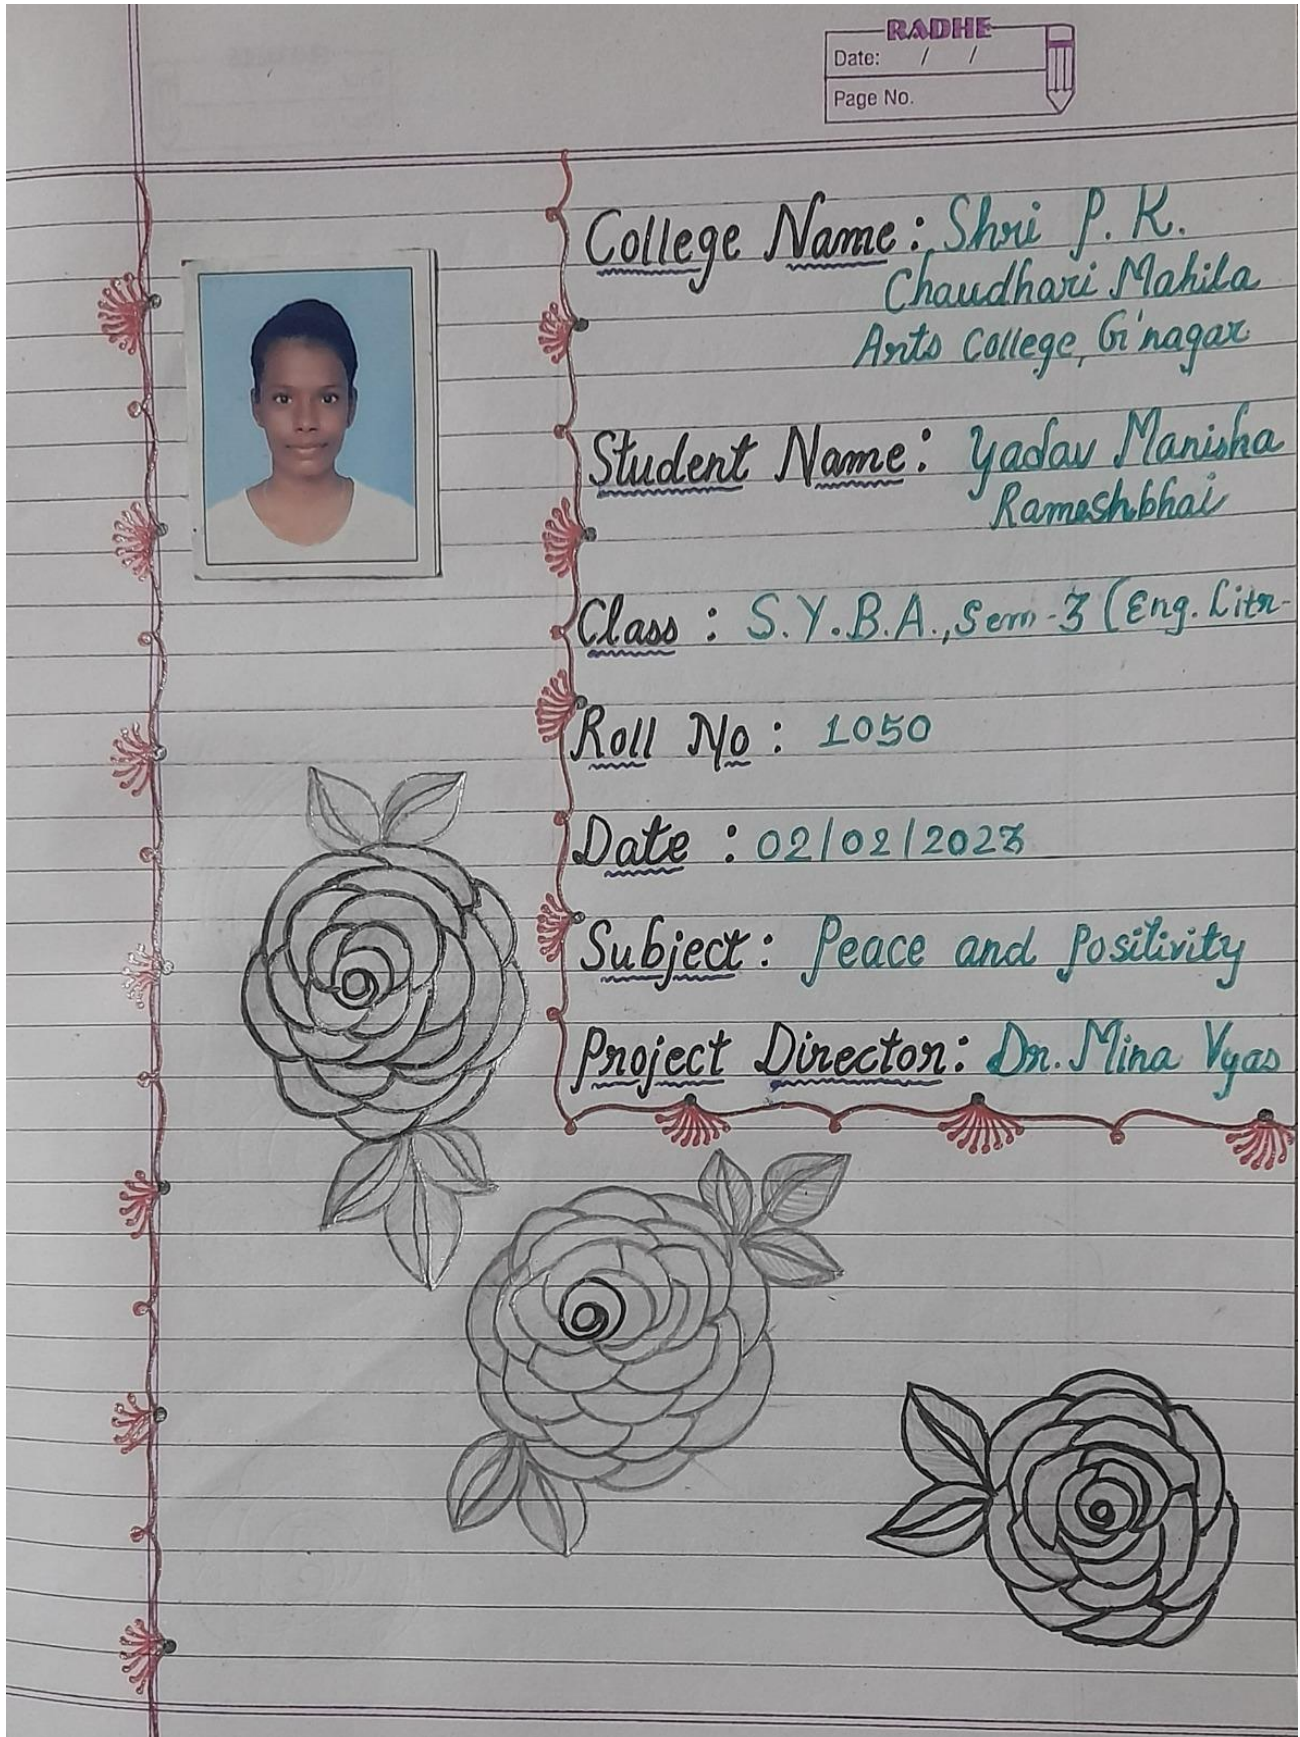 RADHE
Date: / /
Page No.
College Name: Shri P. K.
Chaudhari Mahila
Arts College, G'nagar
Student Name: Yadav Manisha
Rameshbhai
Class : S.Y.B.A., Sem-3 (Eng. Litr-
Roll No : 1050
Date : 02/02/2023
Subject: Peace and Positivity
Project Director: Dr. Mina Vyas